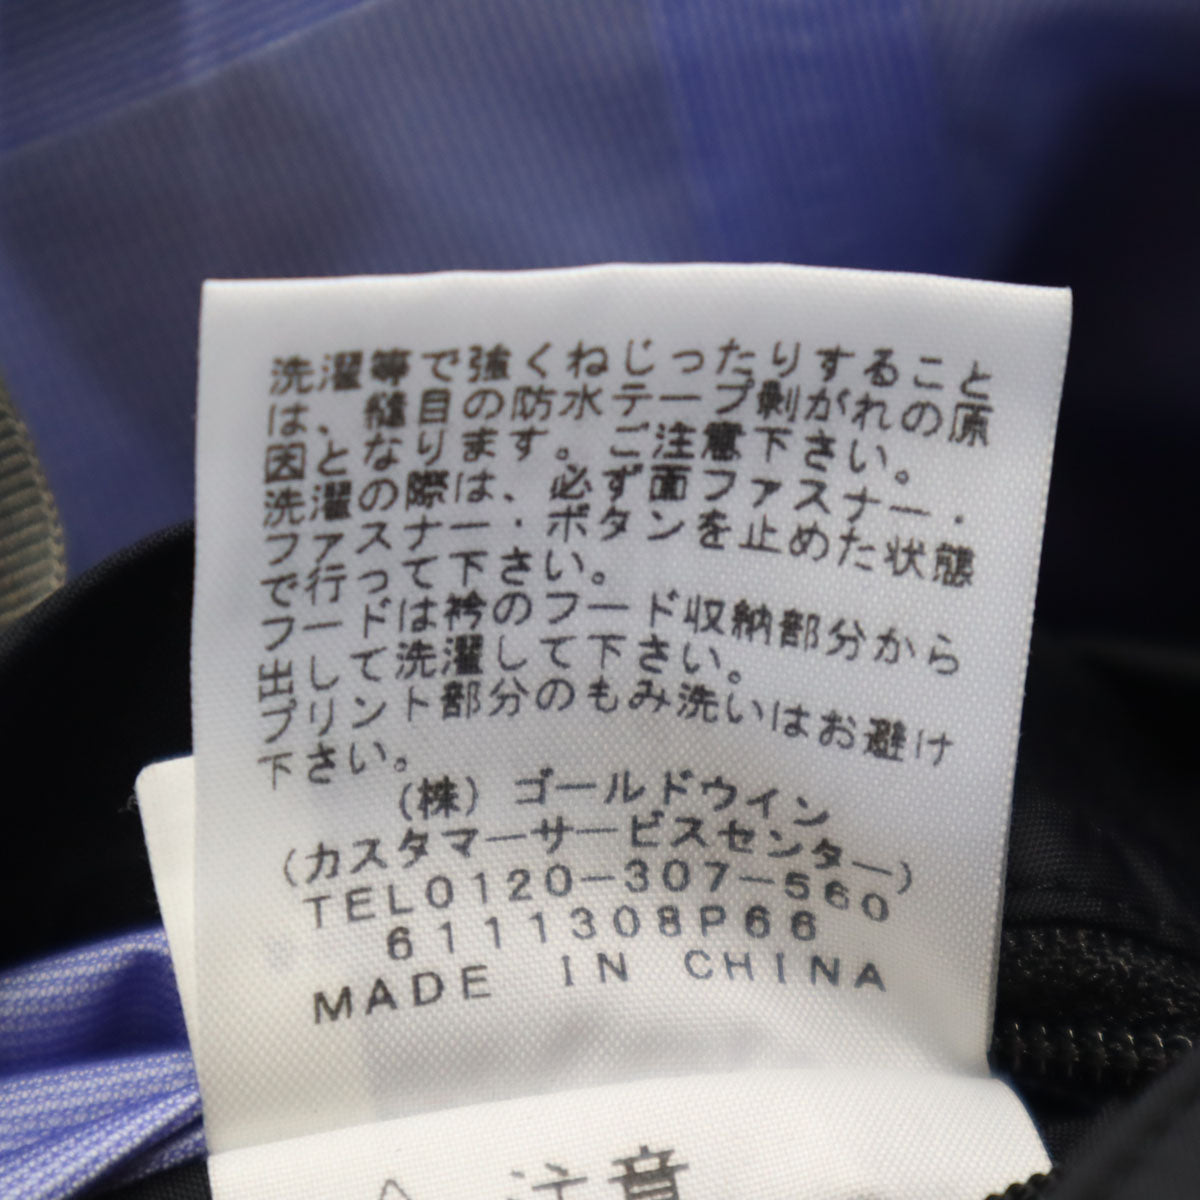 洗濯等で強くねじったりすること
は、縫目の防水テープ剥がれの原
因となります。ご注意下さい。
洗濯の際は、必ず面ファスナー・
ファスナー・ボタンを止めた状態
で行って下さい。
フードは衿のフード収納部分から
出して洗濯して下さい。
プリント部分のもみ洗いはお避け
下さい。
(株)ゴールドウイン
(カスタマーサービスセンター)
TEL0120-307-560
6111308P66
MADE IN CHINA
注意